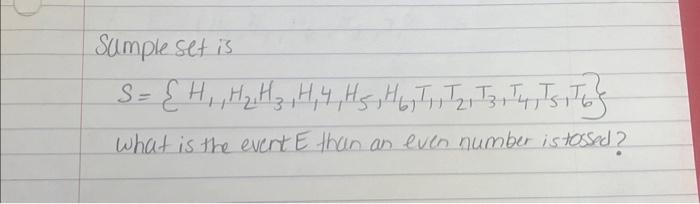 Sample set is
S = { H₁, H₂, H₃, H,4, H₅, H₆, T₁, T₂, T₃, T₄, T₅, T₆}
what is the event E than an even number is tossed?